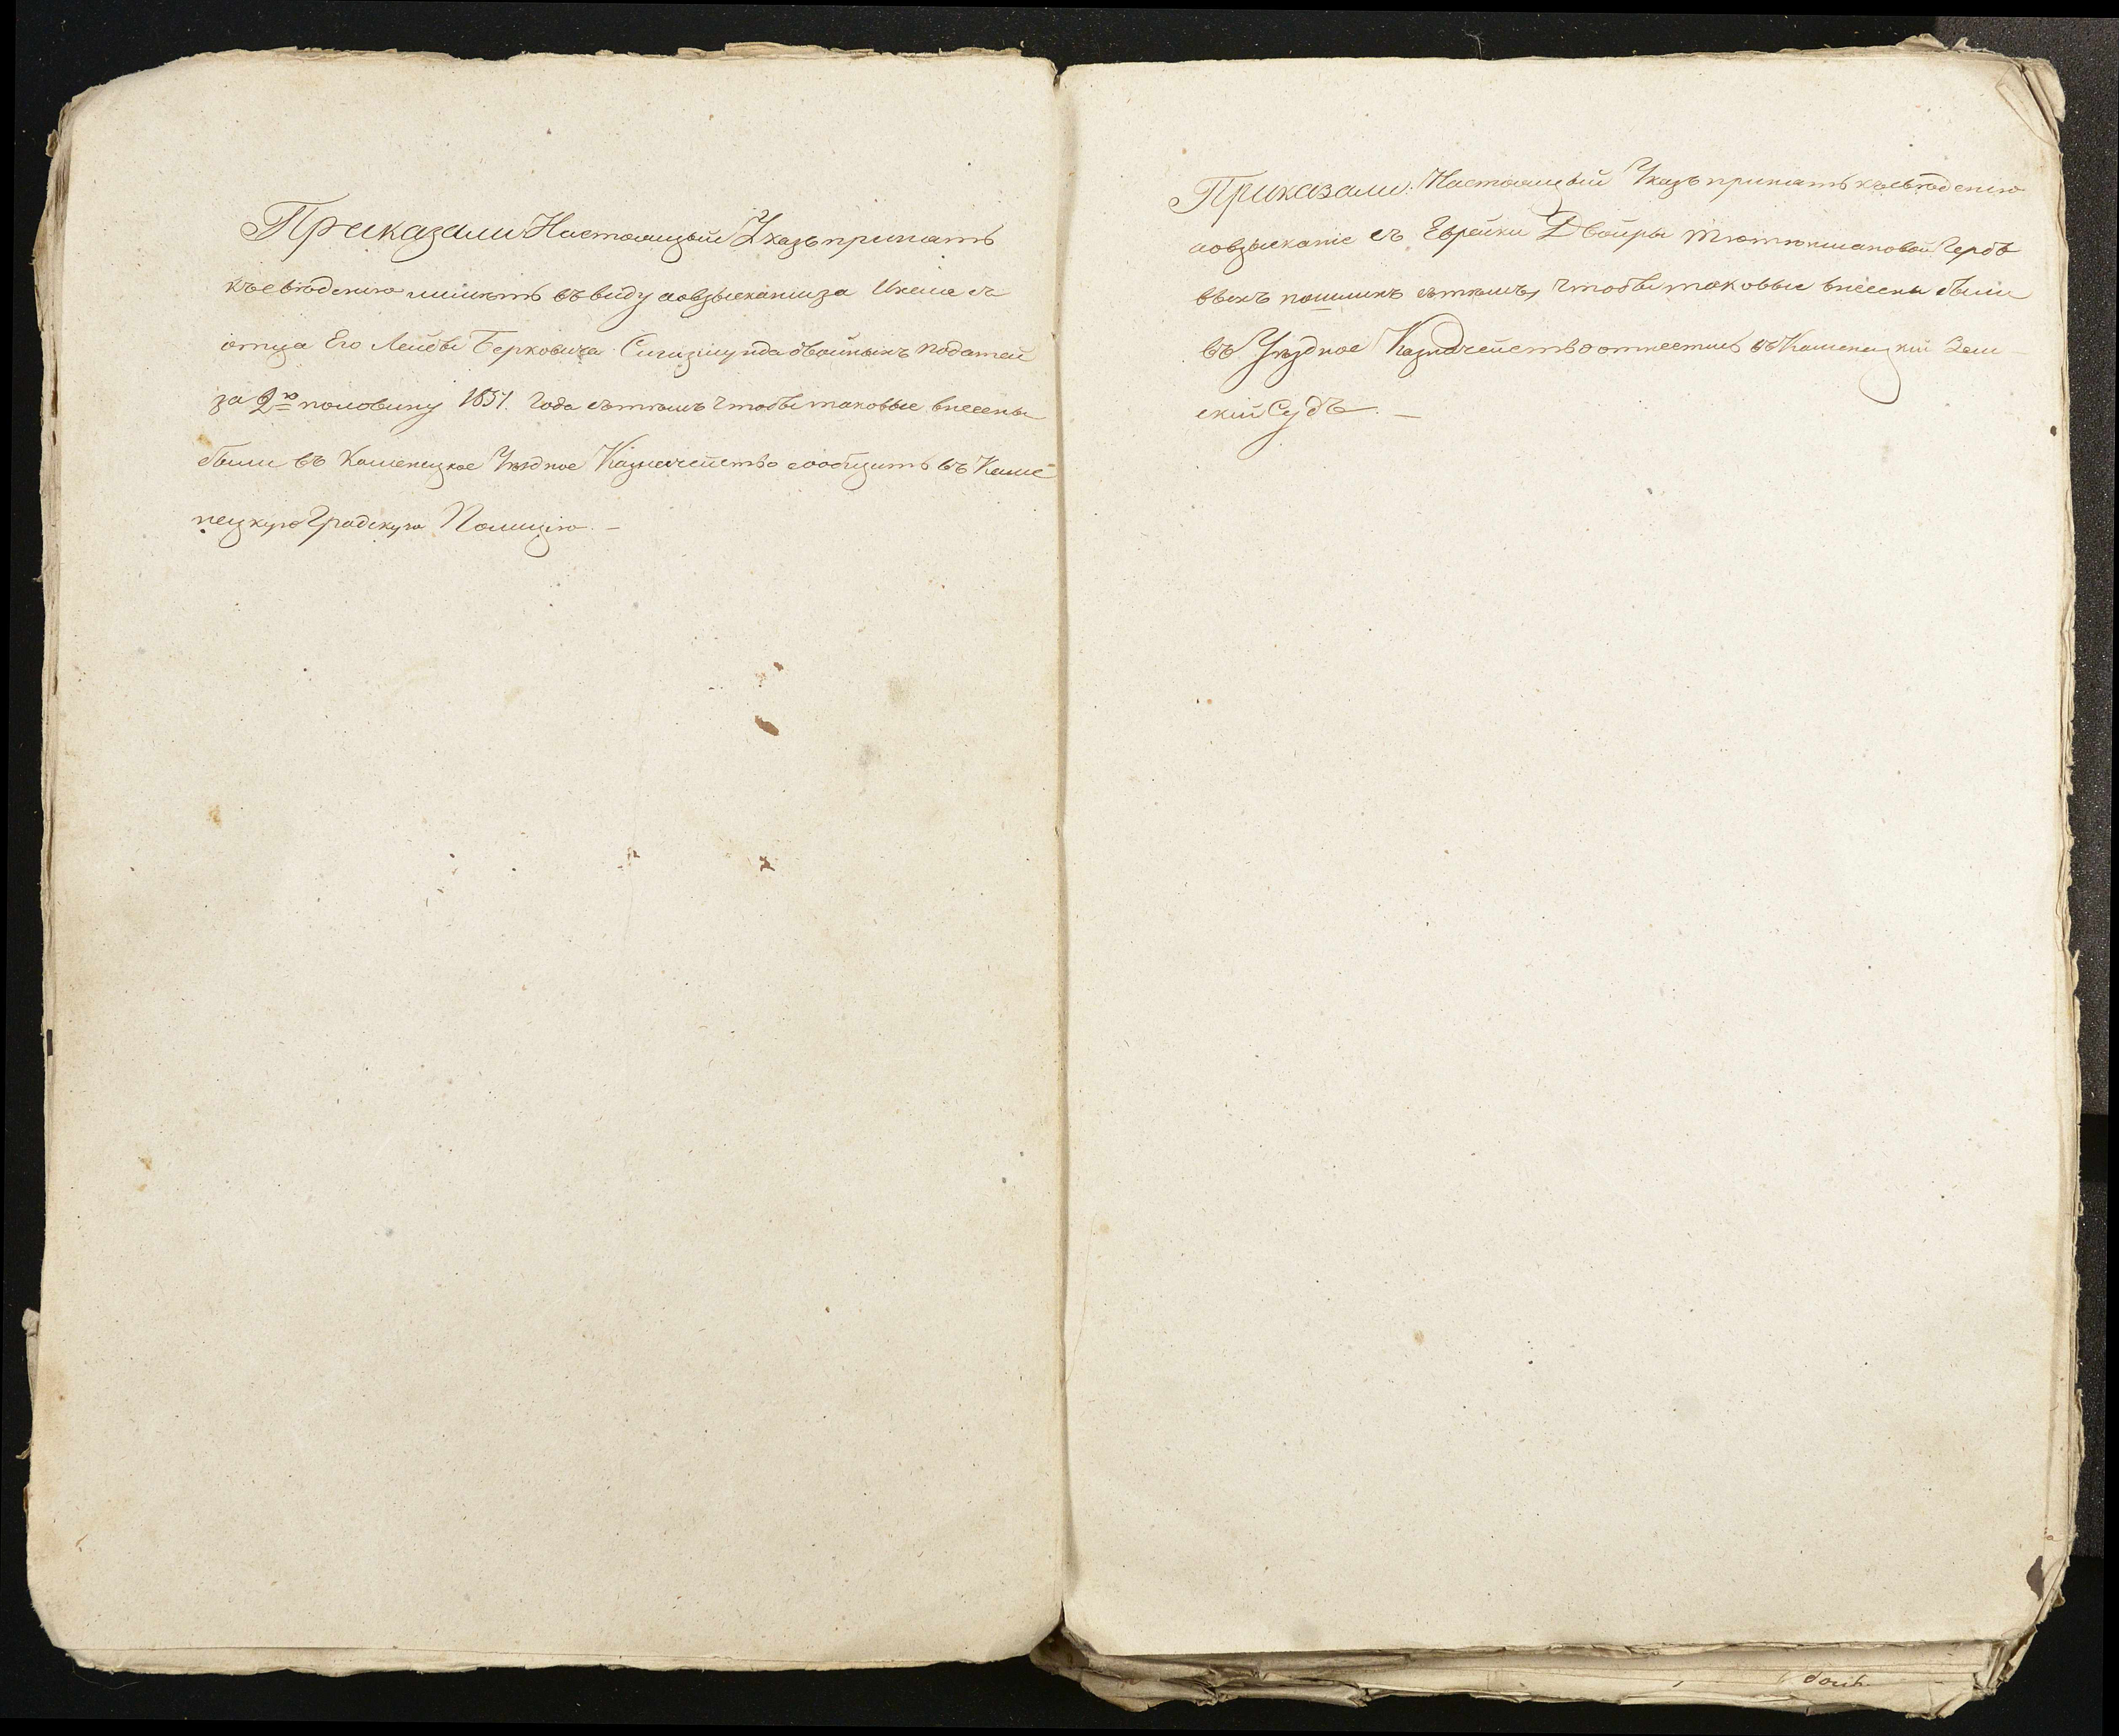 Приказали Настоящый Указъ принять
къ свѣдѣнію и имѣть въ виду а о взысканіи за Икеля съ
отца Его Лейбы Берковича Сигизмунда двойныхъ податей
за 2ю половину 1851. Года съ тѣмъ чтобы таковые внесены
были въ Каменецкое Уѣздное Казначейство сообщить въ Каме-
нецкую Градскую Полицію. —
Приказали: Настоящый Указъ принять къ свѣдѣнію
а о взысканіе съ Еврейки Двойры Гербо
выхъ пошлинъ съ тѣмъ, чтобы таковые внесены были
въ Уѣздное Казначейство отнестись въ Каменецкій Зем-
скій Судъ. —